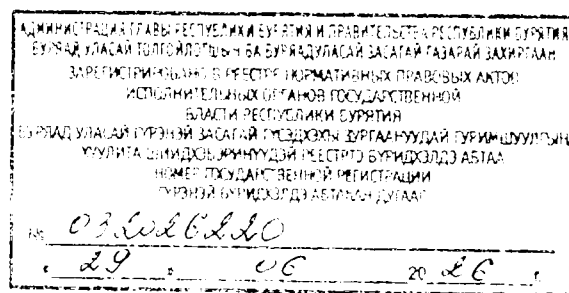 АДМИНИСТРАЦИЯ ГЛАВЫ РЕСПУБЛИКИ БУРЯТИЯ И ПРАВИТЕЛЬСТВА РЕСПУБЛИКИ БУРЯТИЯ
БУРЯАД УЛАСАЙ ТОЛГОЙЛОГШЫН БА БУРЯАД УЛАСАЙ ЗАСАГАЙ ГАЗАРАЙ ЗАХИРГААН
ЗАРЕГИСТРИРОВАНО В РЕЕСТРЕ НОРМАТИВНЫХ ПРАВОВЫХ АКТОВ
ИСПОЛНИТЕЛЬНЫХ ОРГАНОВ ГОСУДАРСТВЕННОЙ
ВЛАСТИ РЕСПУБЛИКИ БУРЯТИЯ
БУРЯАД УЛАСАЙ ГҮРЭНЭЙ ЗАСАГАЙ ГҮСЭДХЭХЫ ЗУРГААНУУДАЙ ГУРИМШУУЛГЫН
ХУУЛИТА ШИИДХЭБЭРИНҮҮДЭЙ РЕЕСТРТО БҮРИДХЭЛДЭ АБТАА
НОМЕР ГОСУДАРСТВЕННОЙ РЕГИСТРАЦИИ
ГҮРЭНЭЙ БҮРИДХЭЛДЭ АБТАҺАН ДУГААР
№ 032026220
« 29 » 06 20 26 г.